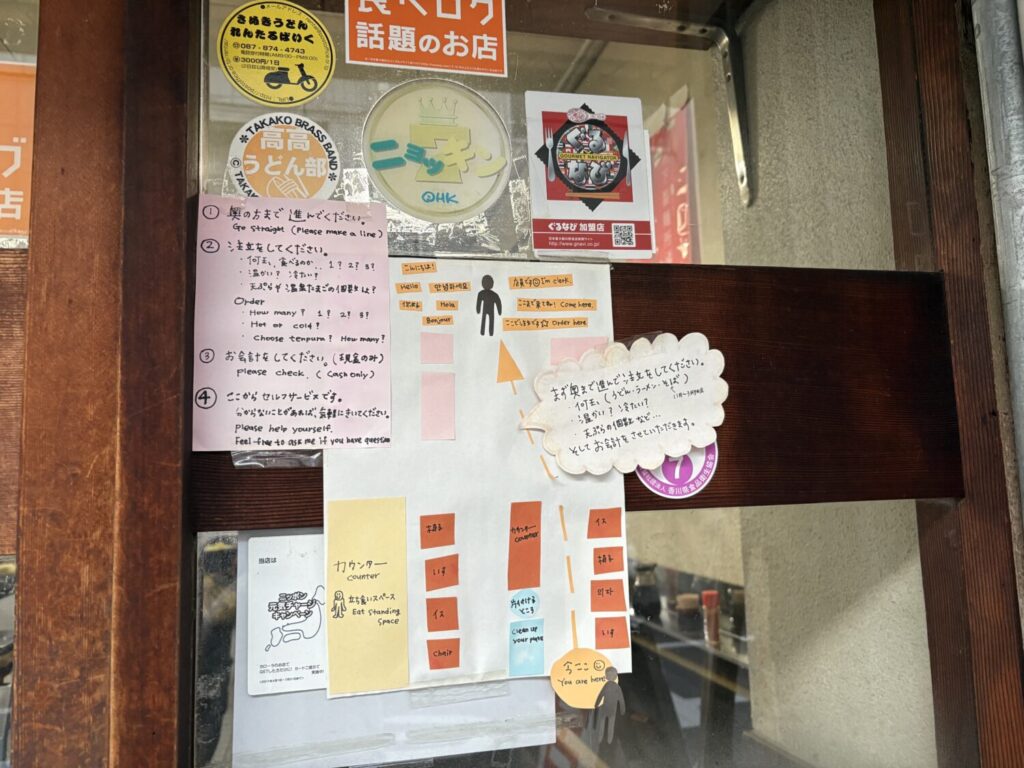 食べログ
話題のお店
さぬきうどん
れんたるばいく
087-874-4743
3000円/1日
TAKAKO BRASS BAND
高高
うどん部
ニョッキン
7
OHK
GOURMET NAVIGATOR
ぐるなび
ぐるなび 加盟店
http://www.gnavi.co.jp/
ブ
店
① 奥の方まで進んでください。
Go straight (Please make a line)
② 注文をしてください。
・何玉、食べるのか‥1? 2? 3?
・温かい? 冷たい?
・天ぷらや温泉たまごの個数は?
Order
・How many? 1? 2? 3?
・Hot or cold?
・Choose tenpura? How many?
③ お会計をしてください。(現金のみ)
please check. (Cash only)
④ ここからセルフサービスです。
分からないことがあれば、気軽にきいてください。
please help yourself.
Feel free to ask me if you have question
こんにちは!
Hello
안녕하세요
你好
Hola
Bonjour
店員です☺ I'm clerk
ここまで来てね! Come here.
ここでいいます☆ Order here.
まず奥まで進んで注文をしてください。
・何玉 (うどん・ラーメン・そば)
・温かい? 冷たい?
・天ぷらの個数など…
そしてお会計をさせていただきます。
7
香川県食品衛生協会
カウンター
counter
立ち食いスペース
Eat standing
space
椅子
いす
イス
chair
カウンター
counter
片付ける
ところ
Clean up
your plate
イス
椅子
いす
今ココ☺
You are here!
当店は
ニッポン
元気チャージ
キャンペーン